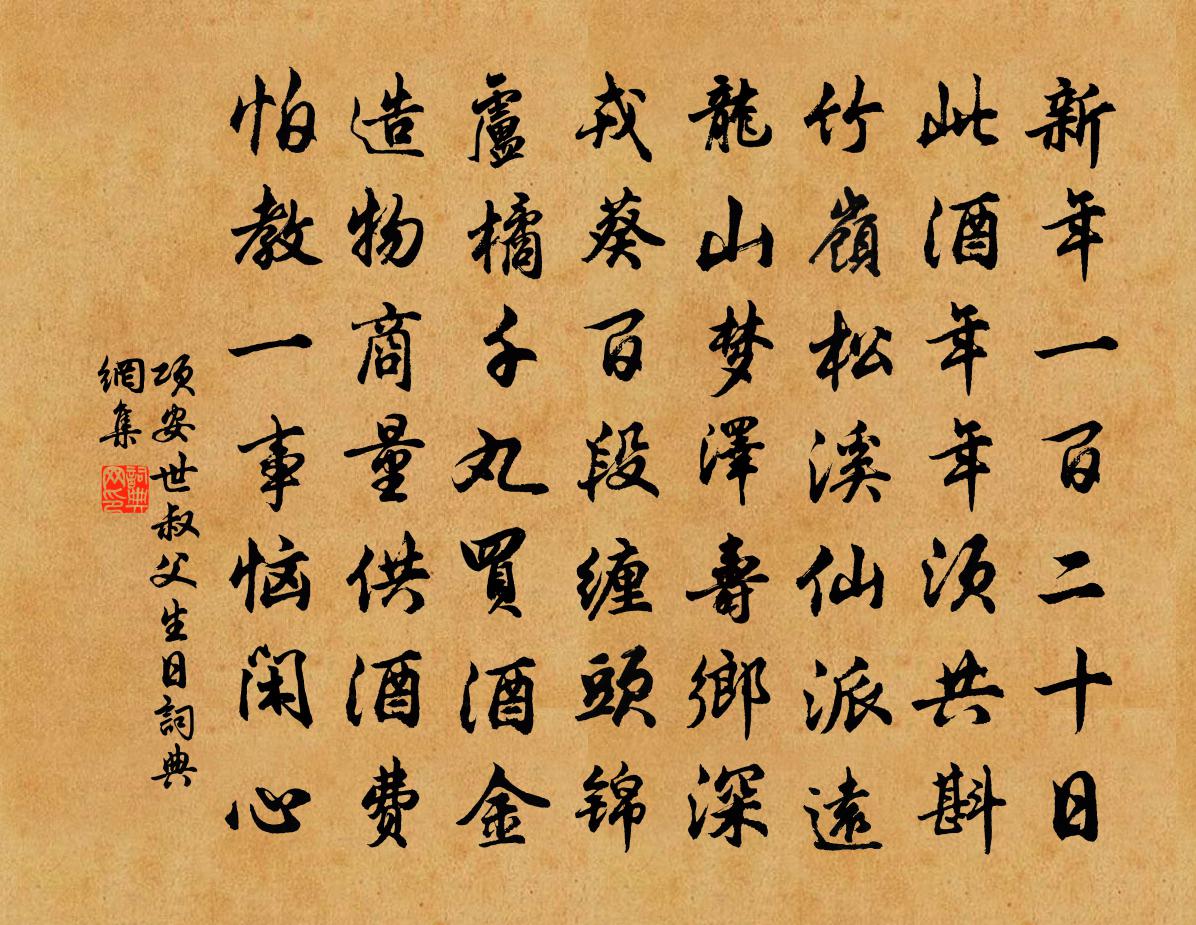 新年一百二十日
此酒年年須共斟
竹嶺松溪仙派遠
龍山梦澤壽鄉深
戎葵百段缠頭锦
盧橘千丸買酒金
造物商量供酒費
怕教一事恼閑心
項安世叔父生日詞典
網集
詞典
网印